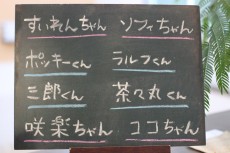 すいれんちゃん ソフィちゃん
ポッキーくん ラルフくん
三郎くん 茶々丸くん
咲楽ちゃん ココちゃん